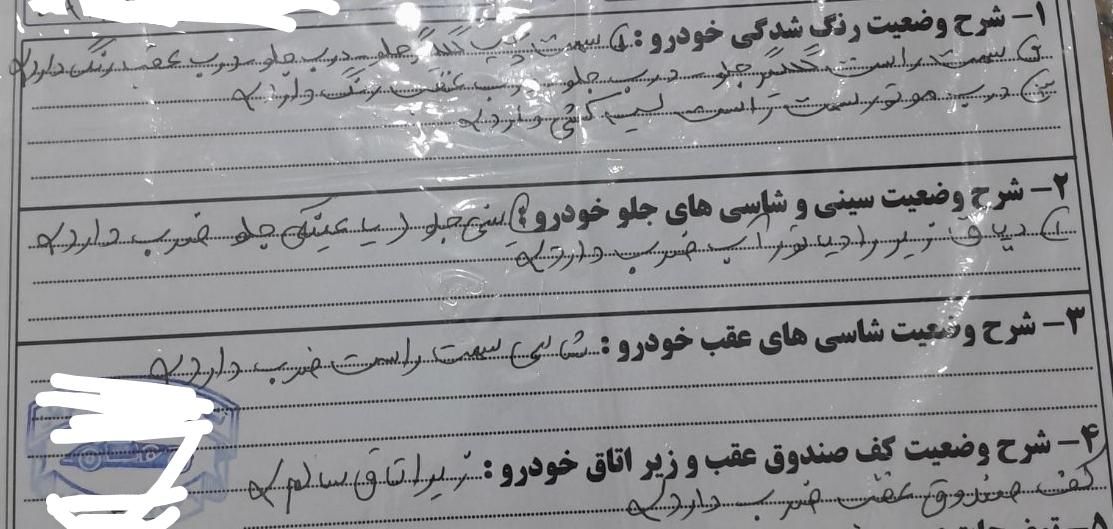 ۱- شرح وضعیت رنگ شدگی خودرو: ۱) سمت چپ گلگیر جلو درب جلو درب عقب رنگ دارد
۲) سمت راست گلگیر جلو درب جلو درب عقب رنگ دارد
۳) درب موتور سمت راست لیسه کشی دارد
۲- شرح وضعیت سینی و شاسی های جلو خودرو: ۱) سینی جلو (یا عینکی جلو ضرب دارد
۲) دیاق زیر رادیاتور آب ضرب دارد
۳- شرح وضعیت شاسی های عقب خودرو: شاسی سمت راست ضرب دارد
۴- شرح وضعیت کف صندوق عقب و زیر اتاق خودرو: زیر اتاق سالم
کف صندوق عقب ضرب دارد